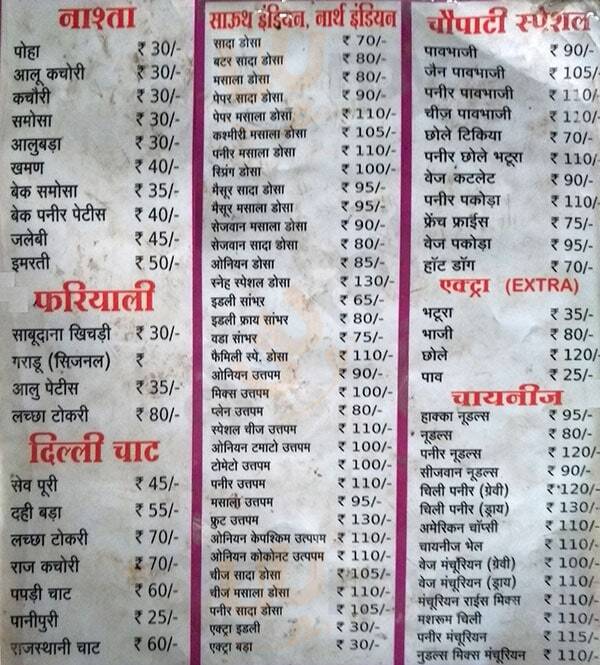 नाश्ता
पोहा ₹ 30/-
आलू कचोरी ₹ 30/-
कचौरी ₹ 30/-
समोसा ₹ 30/-
आलुबड़ा ₹ 30/-
खमण ₹ 40/-
बेक समोसा ₹ 35/-
बेक पनीर पेटीस ₹ 40/-
जलेबी ₹ 45/-
इमरती ₹ 50/-
फरियाली
साबूदाना खिचड़ी ₹ 30/-
गराडू (सिजनल) ₹
आलु पेटीस ₹ 35/-
लच्छा टोकरी ₹ 80/-
दिल्ली चाट
सेव पूरी ₹ 45/-
दही बड़ा ₹ 55/-
लच्छा टोकरी ₹ 70/-
राज कचोरी ₹ 70/-
पपड़ी चाट ₹ 60/-
पानीपुरी ₹ 25/-
राजस्थानी चाट ₹ 60/-
साऊथ इंडियन, नार्थ इंडियन
सादा डोसा ₹ 70/-
बटर सादा डोसा ₹ 80/-
मसाला डोसा ₹ 80/-
पेपर सादा डोसा ₹ 90/-
पेपर मसाला डोसा ₹ 110/-
कश्मीरी मसाला डोसा ₹ 105/-
पनीर मसाला डोसा ₹ 110/-
स्प्रिंग डोसा ₹ 100/-
मैसूर सादा डोसा ₹ 95/-
मैसूर मसाला डोसा ₹ 95/-
सेजवान मसाला डोसा ₹ 90/-
सेजवान सादा डोसा ₹ 80/-
ओनियन डोसा ₹ 85/-
स्नेह स्पेशल डोसा ₹ 130/-
इडली सांभर ₹ 65/-
इडली फ्राय सांभर ₹ 80/-
वडा सांभर ₹ 75/-
फैमिली स्पे. डोसा ₹ 110/-
ओनियन उत्तपम ₹ 90/-
मिक्स उत्तपम ₹ 100/-
प्लेन उत्तपम ₹ 80/-
स्पेशल चीज उत्तपम ₹ 110/-
ओनियन टमाटो उत्तपम ₹ 100/-
टोमेटो उत्तपम ₹ 100/-
पनीर उत्तपम ₹ 110/-
मसाला उत्तपम ₹ 95/-
फ्रुट उत्तपम ₹ 130/-
ओनियन केपश्किम उत्पपम ₹ 110/-
ओनियन कोकोनट उत्पपम ₹ 110/-
चीज सादा डोसा ₹ 105/-
चीज मसाला डोसा ₹ 110/-
पनीर सादा डोसा ₹ 105/-
एक्ट्रा इडली ₹ 30/-
एक्ट्रा बड़ा ₹ 30/-
चौपाटी स्पेशल
पावभाजी ₹ 90/-
जैन पावभाजी ₹ 105/-
पनीर पावभाजी ₹ 110/-
चीज़ पावभाजी ₹ 110/-
छोले टिकिया ₹ 70/-
पनीर छोले भटूरा ₹ 110/-
वेज कटलेट ₹ 90/-
पनीर पकोड़ा ₹ 110/-
फ्रेंच फ्राईस ₹ 75/-
वेज पकोड़ा ₹ 95/-
हॉट डॉग ₹ 70/-
एक्ट्रा (EXTRA)
भटूरा ₹ 35/-
भाजी ₹ 80/-
छोले ₹ 120/-
पाव ₹ 25/-
चायनीज
हाक्का नूडल्स ₹ 95/-
नूडल्स ₹ 80/-
पनीर नूडल्स ₹ 120/-
सीजवान नूडल्स ₹ 90/-
चिली पनीर (ग्रेवी) ₹ 120/-
चिली पनीर (ड्राय) ₹ 130/-
अमेरिकन चॉप्सी ₹ 110/-
चायनीज भेल ₹ 110/-
वेज मंचूरियन (ग्रेवी) ₹ 100/-
वेज मंचूरियन (ड्राय) ₹ 110/-
मंचूरियन राईस मिक्स ₹ 110/-
मशरूम चिली ₹ 110/-
पनीर मंचूरियन ₹ 115/-
नुडल्स मिक्स मंचूरियन ₹ 110/-